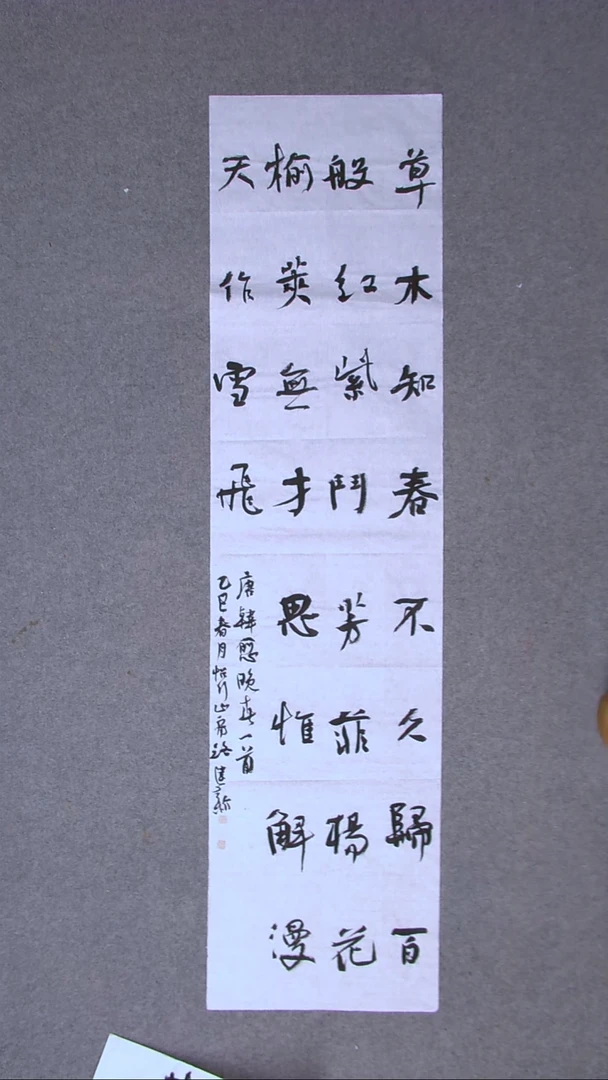 草木知春不久歸百
般紅紫鬥芳菲楊花
榆莢無才思惟解漫
天作雪飛
唐韓愈晚春一首
乙巳春月山房路建